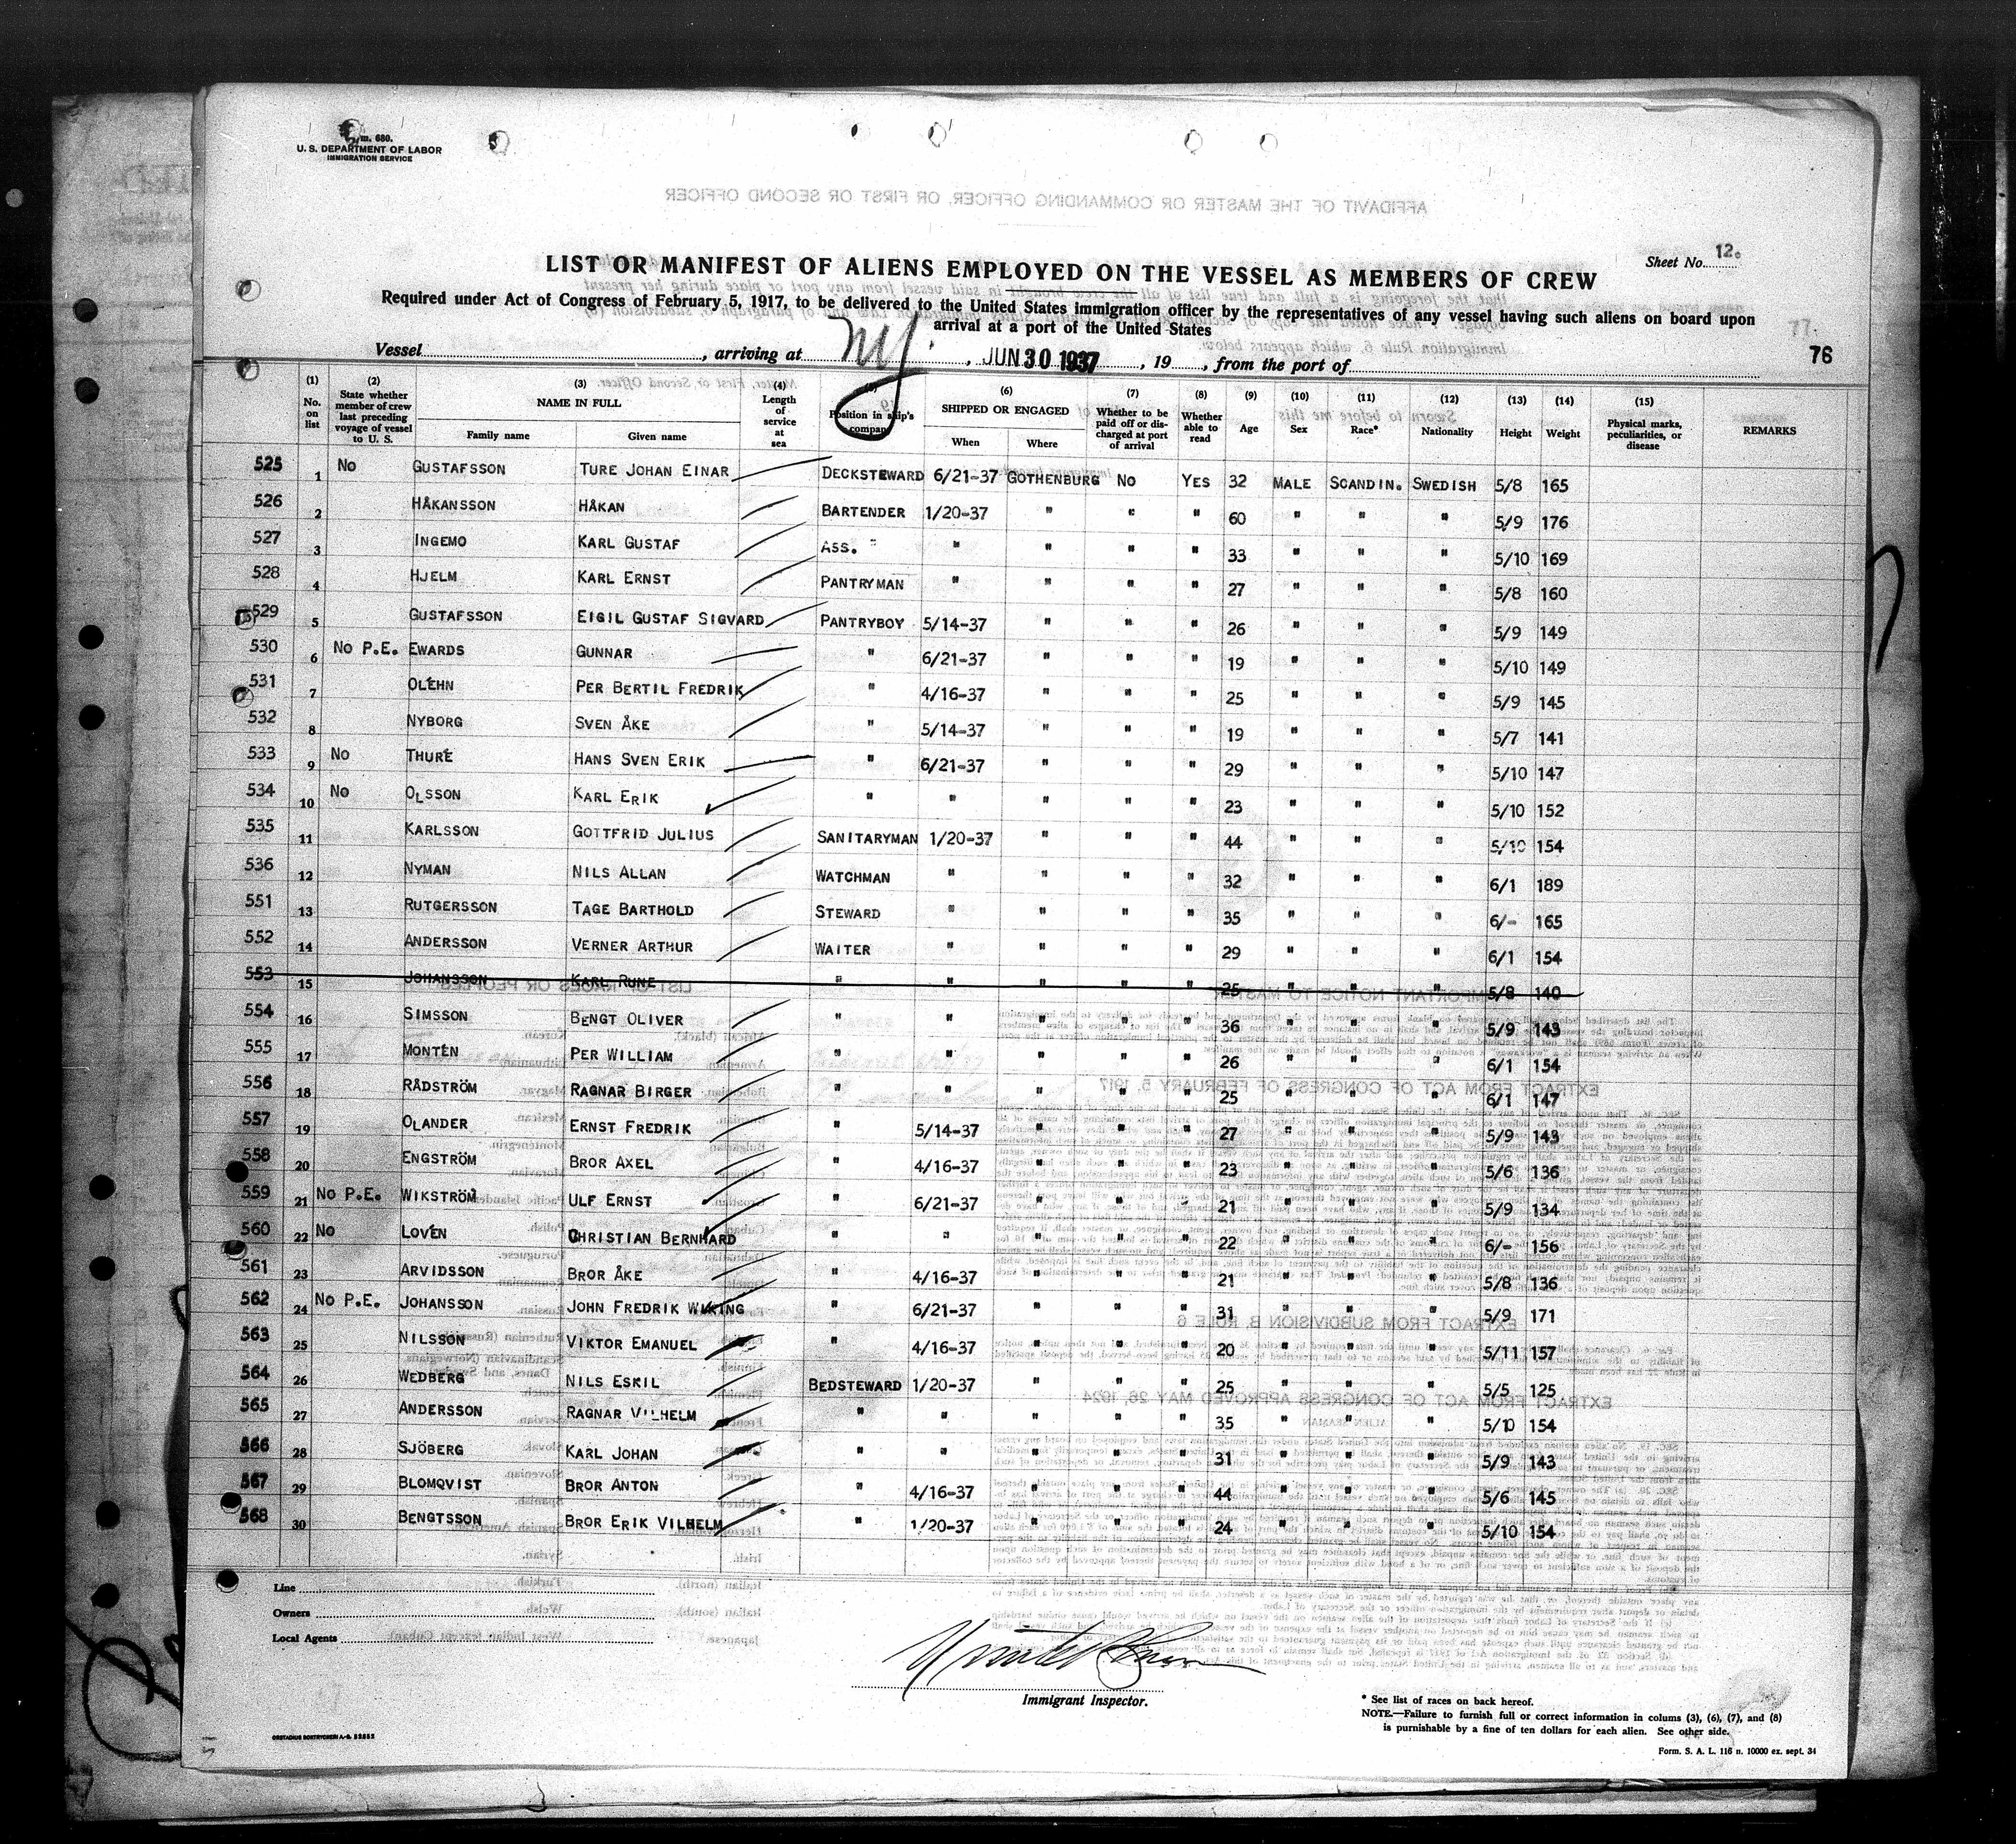 m. 680.
U. S. DEPARTMENT OF LABOR
IMMIGRATION SERVICE
AFFIDAVIT OF THE MASTER OR COMMANDING OFFICER, OR FIRST OR SECOND OFFICER
Sheet No. 12.
LIST OR MANIFEST OF ALIENS EMPLOYED ON THE VESSEL AS MEMBERS OF CREW
Required under Act of Congress of February 5, 1917, to be delivered to the United States immigration officer by the representatives of any vessel having such aliens on board upon
arrival at a port of the United States
77
76
Vessel , arriving at NY. , JUN 30 1937 , 19 , from the port of
(1) No. on list (2) State whether member of crew last preceding voyage of vessel to U. S. (3) NAME IN FULL Family name Given name (4) Length of service at sea (5) Position in ship's company (6) SHIPPED OR ENGAGED When Where (7) Whether to be paid off or discharged at port of arrival (8) Whether able to read (9) Age (10) Sex (11) Race* (12) Nationality (13) Height (14) Weight (15) Physical marks, peculiarities, or disease REMARKS
525 1 No GUSTAFSSON TURE JOHAN EINAR DECKSTEWARD 6/21-37 GOTHENBURG No YES 32 MALE SCANDIN. SWEDISH 5/8 165
526 2 HÅKANSSON HÅKAN BARTENDER 1/20-37 " " " 60 " " " 5/9 176
527 3 INGEMO KARL GUSTAF ASS. " " " " " 33 " " " 5/10 169
528 4 HJELM KARL ERNST PANTRYMAN " " " " 27 " " " 5/8 160
529 5 GUSTAFSSON EIGIL GUSTAF SIGVARD PANTRYBOY 5/14-37 " " " 26 " " " 5/9 149
530 6 No P.E. EWARDS GUNNAR " 6/21-37 " " " 19 " " " 5/10 149
531 7 OLÉHN PER BERTIL FREDRIK " 4/16-37 " " " 25 " " " 5/9 145
532 8 NYBORG SVEN ÅKE " 5/14-37 " " " 19 " " " 5/7 141
533 9 No THURÉ HANS SVEN ERIK " 6/21-37 " " " 29 " " " 5/10 147
534 10 No OLSSON KARL ERIK " " " " " 23 " " " 5/10 152
535 11 KARLSSON GOTTFRID JULIUS SANITARYMAN 1/20-37 " " " 44 " " " 5/10 154
536 12 NYMAN NILS ALLAN WATCHMAN " " " " 32 " " " 6/1 189
551 13 RUTGERSSON TAGE BARTHOLD STEWARD " " " " 35 " " " 6/- 165
552 14 ANDERSSON VERNER ARTHUR WAITER " " " " 29 " " " 6/1 154
553 15 JOHANSSON KARL RUNE " " " " " 25 " " " 5/8 140
554 16 SIMSSON BENGT OLIVER " " " " " 36 " " " 5/9 143
555 17 MONTÉN PER WILLIAM " " " " " 26 " " " 6/1 154
556 18 RÅDSTRÖM RAGNAR BIRGER " " " " " 25 " " " 6/1 147
557 19 OLANDER ERNST FREDRIK " 5/14-37 " " " 27 " " " 5/9 143
558 20 ENGSTRÖM BROR AXEL " 4/16-37 " " " 23 " " " 5/6 136
559 21 No P.E. WIKSTRÖM ULF ERNST " 6/21-37 " " " 21 " " " 5/9 134
560 22 No LOVÉN CHRISTIAN BERNHARD " " " " " 22 " " " 6/- 156
561 23 ARVIDSSON BROR ÅKE " 4/16-37 " " " 21 " " " 5/8 136
562 24 No P.E. JOHANSSON JOHN FREDRIK WIKING " 6/21-37 " " " 31 " " " 5/9 171
563 25 NILSSON VIKTOR EMANUEL " 4/16-37 " " " 20 " " " 5/11 157
564 26 WEDBERG NILS ESKIL BEDSTEWARD 1/20-37 " " " 25 " " " 5/5 125
565 27 ANDERSSON RAGNAR VILHELM " " " " " 35 " " " 5/10 154
566 28 SJÖBERG KARL JOHAN " " " " " 31 " " " 5/9 143
567 29 BLOMQVIST BROR ANTON " 4/16-37 " " " 44 " " " 5/6 145
568 30 BENGTSSON BROR ERIK VILHELM " 1/20-37 " " " 24 " " " 5/10 154
Line
Owners
Local Agents
Immigrant Inspector.
* See list of races on back hereof.
NOTE.—Failure to furnish full or correct information in colums (3), (6), (7), and (8)
is punishable by a fine of ten dollars for each alien. See other side.
Form. S. A. L. 116 n. 10000 ex. sept. 34